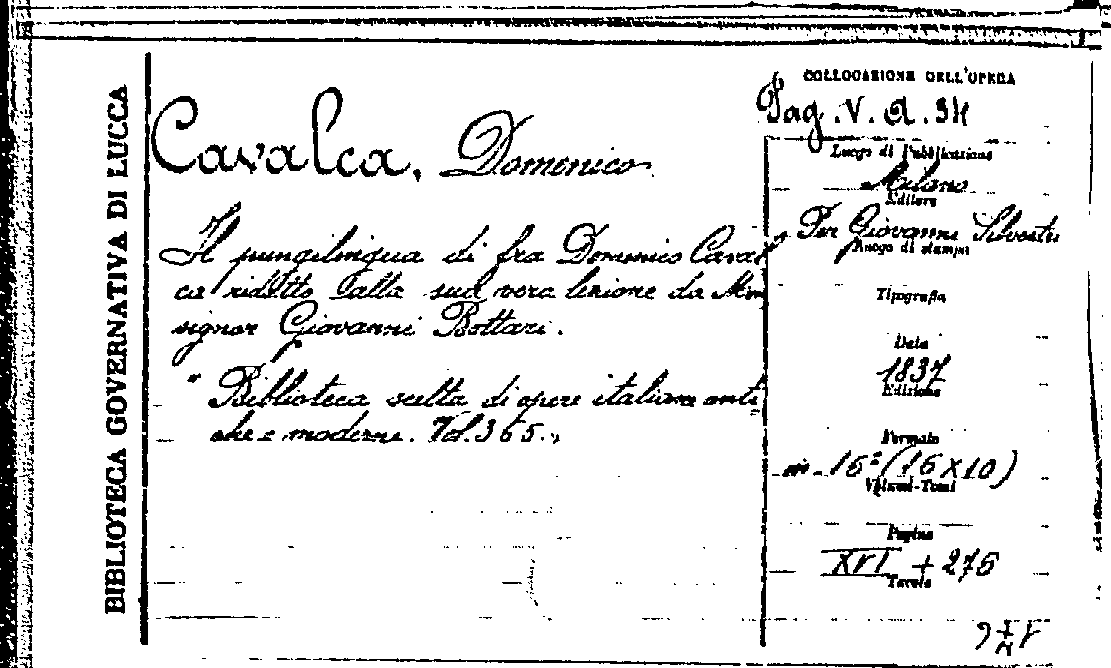 BIBLIOTECA GOVERNATIVA DI LUCCA
Cavalca, Domenico
Il pungilingua di fra Domenico Caval
ca ridotto alla sua vera lezione da Mon
signor Giovanni Bottari.
"Biblioteca scelta di opere italiane anti
che e moderne. Vol. 365."
COLLOCAZIONE DELL'OPERA
Pag. V. A. 34
Luogo di Pubblicazione
Milano
Editore
Per Giovanni Silvestri
Luogo di stampa
Tipografia
Data
1837
Edizione
Formato
in-16° (16 x 10)
Volumi-Tomi
Pagine
XVI + 275
Tavole